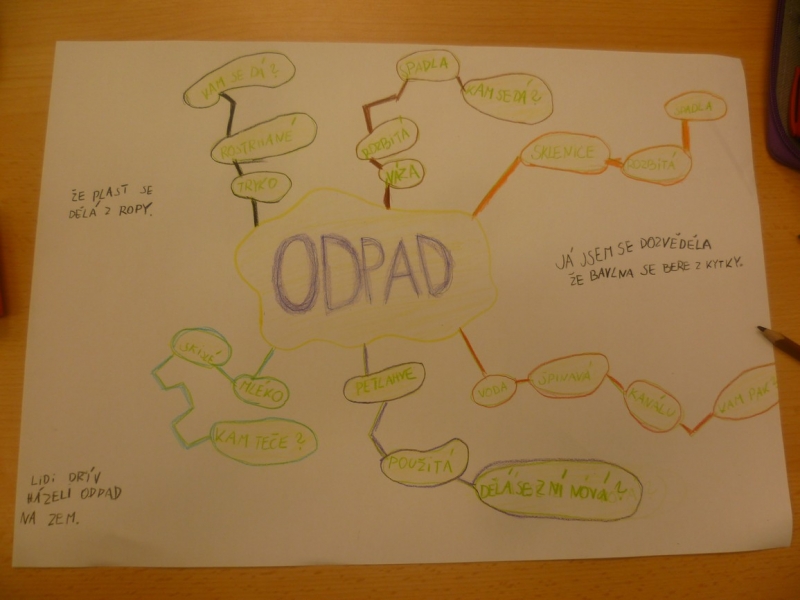 KAM SE DÁ?
ROSTRHANÉ
TRYKO
SPADLA
KAM SE DÁ?
ROZBITÁ
VÁZA
SPADLA
SKLENICE
ROZBITÁ
ŽE PLAST SE
DĚLÁ Z ROPY.
ODPAD
JÁ JSEM SE DOZVĚDĚLA
ŽE BAVLNA SE BERE Z KYTKY.
MLÉKO
KAM TEČE?
PETLAHVE
POUŽITÁ
DĚLÁ SE Z NÍ NOVÁ?
VODA
ŠPINAVÁ
KANÁLU
KAM PAK?
LIDI DŘÍV
HÁZELI ODPAD
NA ZEM.